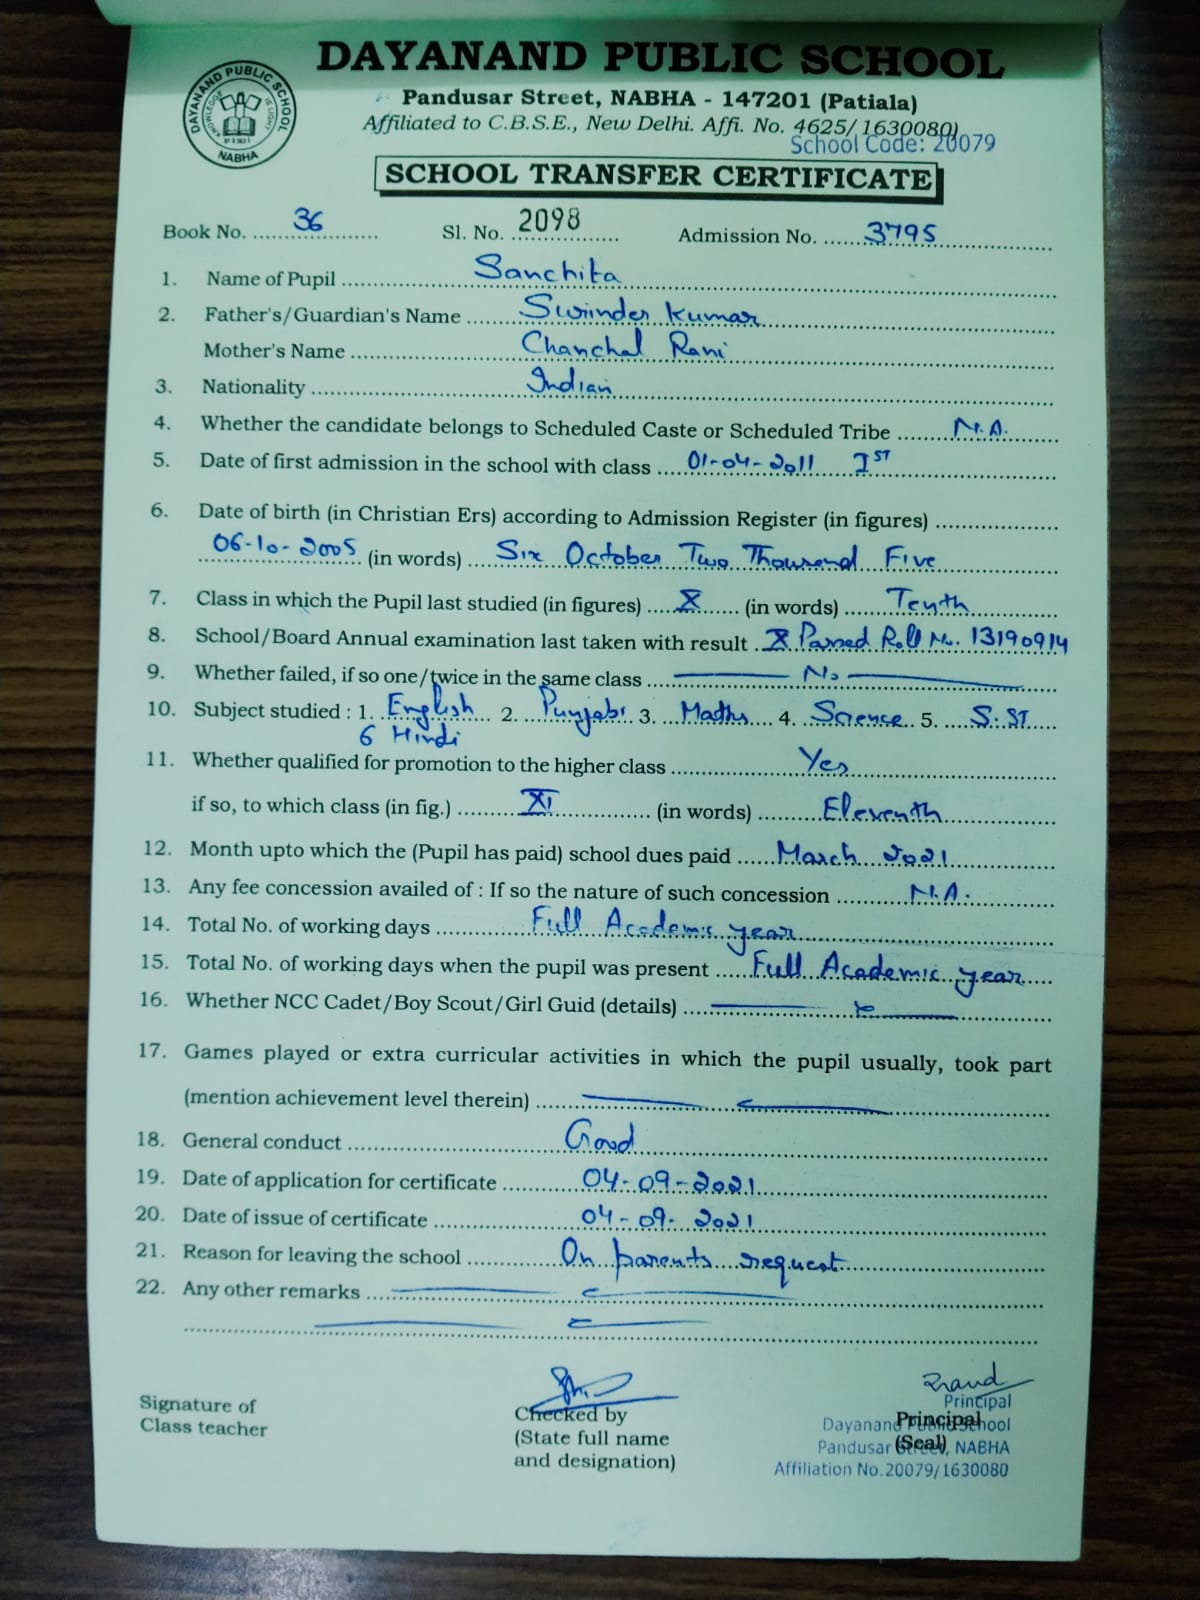 DAYANAND PUBLIC SCHOOL
DAYANAND PUBLIC SCHOOL
KNOWLEDGE IS LIGHT
NABHA
Pandusar Street, NABHA - 147201 (Patiala)
Affiliated to C.B.S.E., New Delhi. Affi. No. 4625/1630080)
School Code: 20079
SCHOOL TRANSFER CERTIFICATE
Book No. 36 Sl. No. 2098 Admission No. 3795
1. Name of Pupil Sanchita
2. Father's/Guardian's Name Surinder Kumar
Mother's Name Chanchal Rani
3. Nationality Indian
4. Whether the candidate belongs to Scheduled Caste or Scheduled Tribe N.A.
5. Date of first admission in the school with class 01-04-2011 Ist
6. Date of birth (in Christian Ers) according to Admission Register (in figures)
06-10-2005 (in words) Six October Two Thousand Five
7. Class in which the Pupil last studied (in figures) X (in words) Tenth
8. School/Board Annual examination last taken with result X Passed Roll No. 13190914
9. Whether failed, if so one/twice in the same class No
10. Subject studied : 1. English 2. Punjabi 3. Maths 4. Science 5. S.ST
6 Hindi
11. Whether qualified for promotion to the higher class Yes
if so, to which class (in fig.) XI (in words) Eleventh
12. Month upto which the (Pupil has paid) school dues paid March 2021
13. Any fee concession availed of : If so the nature of such concession N.A.
14. Total No. of working days Full Academic year
15. Total No. of working days when the pupil was present Full Academic year
16. Whether NCC Cadet/Boy Scout/Girl Guid (details)
17. Games played or extra curricular activities in which the pupil usually, took part
(mention achievement level therein)
18. General conduct Good
19. Date of application for certificate 04-09-2021
20. Date of issue of certificate 04-09-2021
21. Reason for leaving the school On parents request
22. Any other remarks
Signature of
Class teacher
Checked by
(State full name
and designation)
Principal
(Seal)
Principal
Dayanand Public School
Pandusar Street, NABHA
Affiliation No.20079/1630080